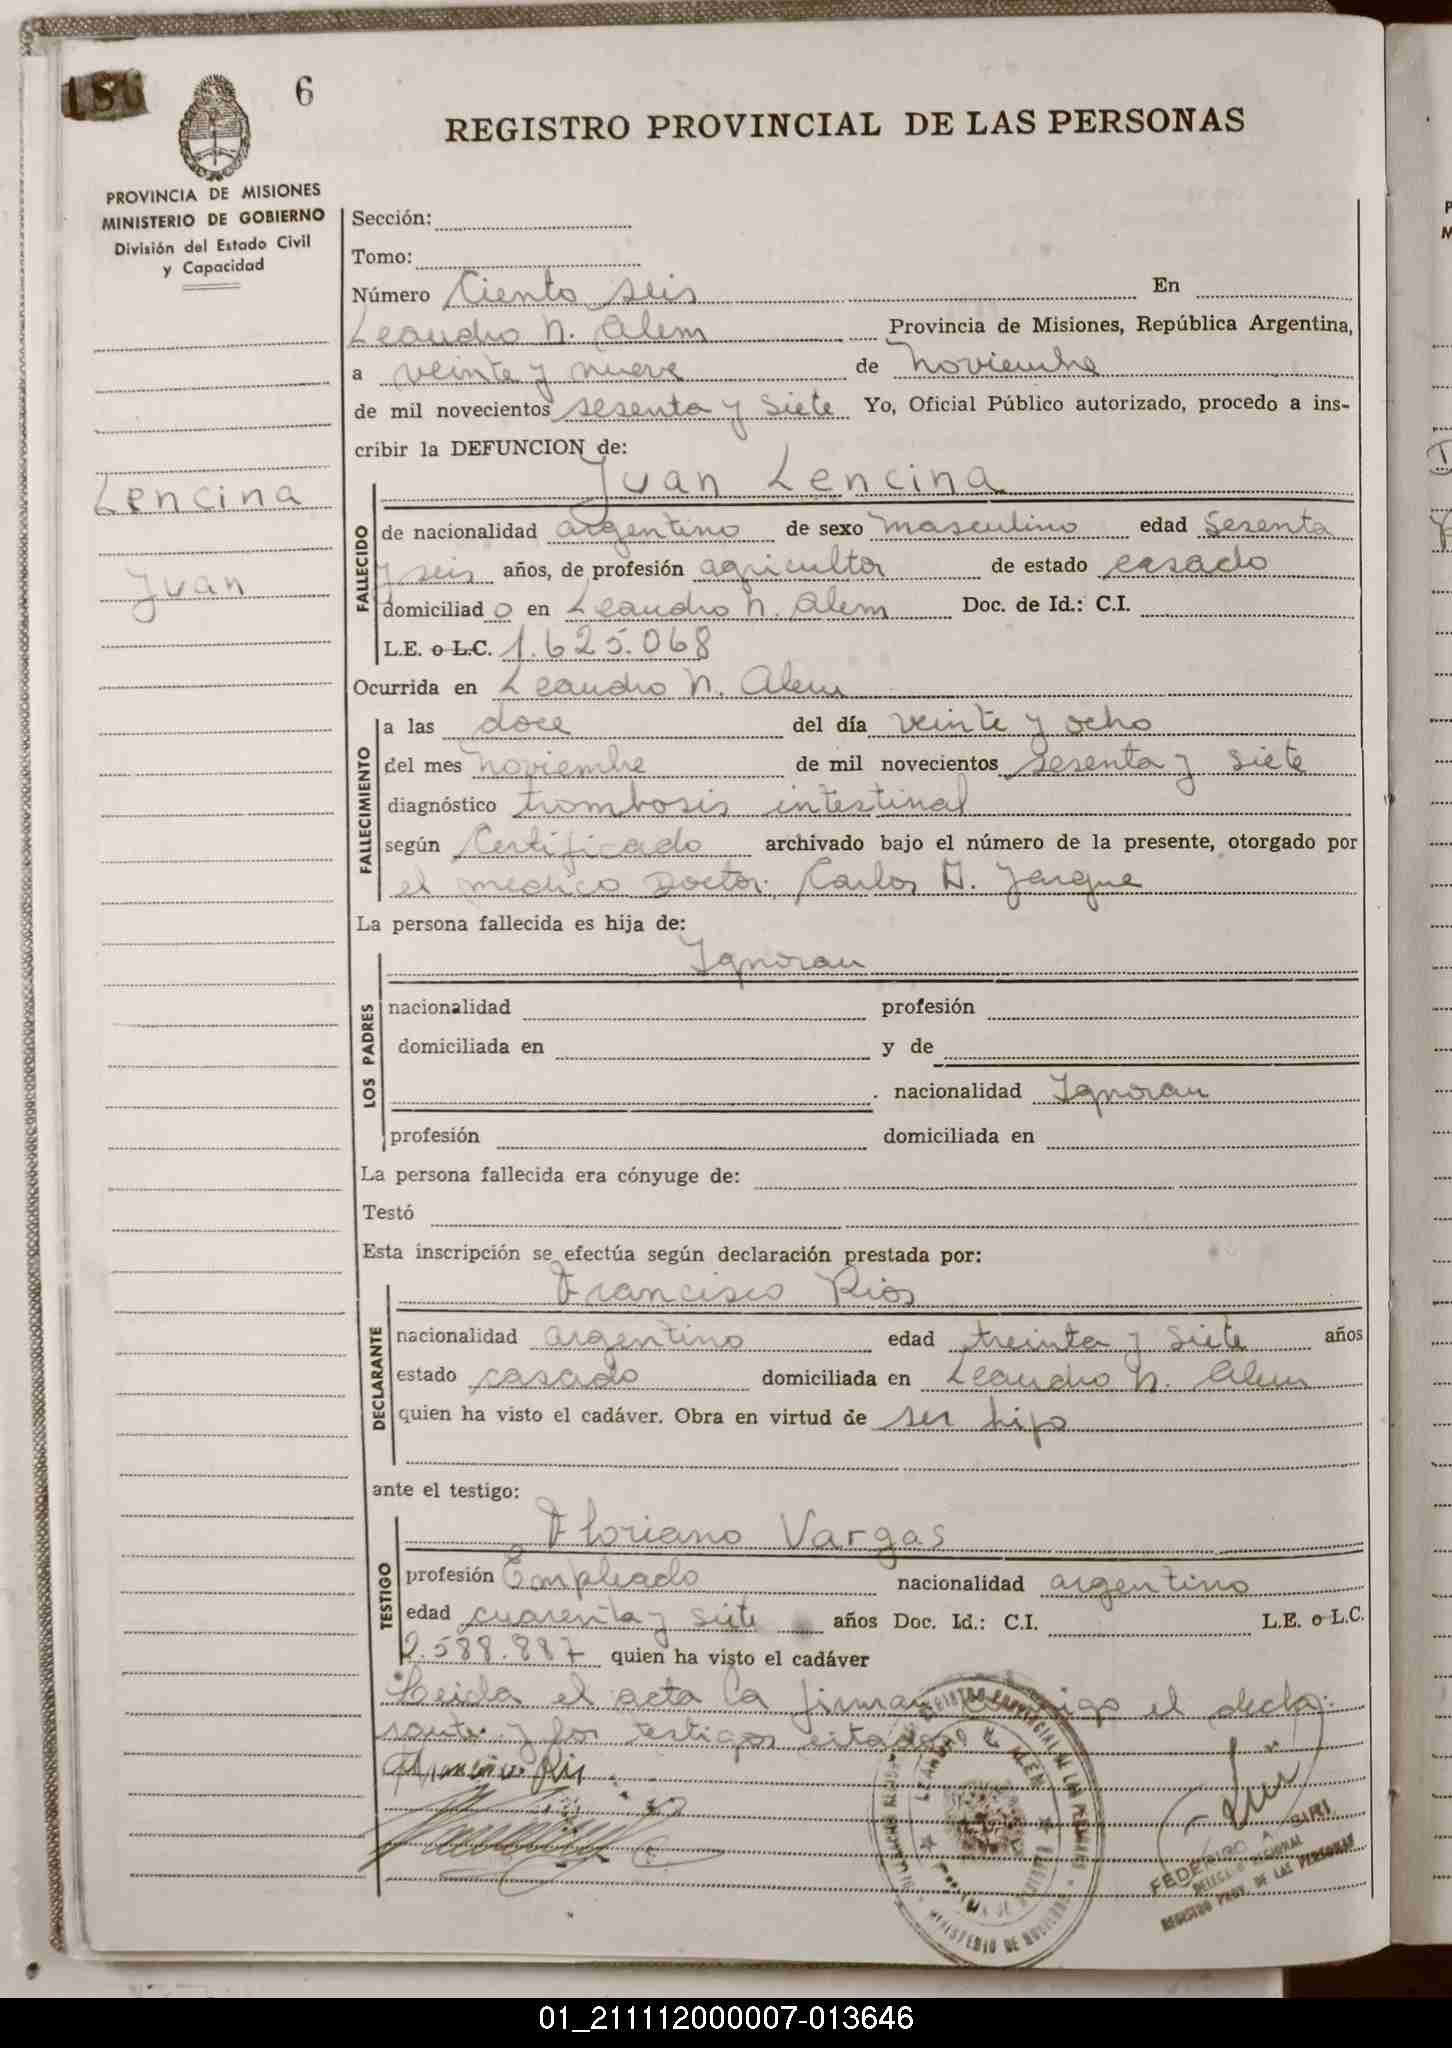 186
6
REGISTRO PROVINCIAL DE LAS PERSONAS
PROVINCIA DE MISIONES
MINISTERIO DE GOBIERNO
División del Estado Civil
y Capacidad
Lencina
Juan
Sección:
Tomo:
Número Ciento seis En
Leandro N. Alem Provincia de Misiones, República Argentina,
a veinte y nueve de Noviembre
de mil novecientos sesenta y siete Yo, Oficial Público autorizado, procedo a ins-
cribir la DEFUNCION de:
Juan Lencina
FALLECIDO
de nacionalidad argentino de sexo masculino edad sesenta
y seis años, de profesión agricultor de estado casado
domiciliado en Leandro N. Alem Doc. de Id.: C.I.
L.E. o L.C. 1.625.068
Ocurrida en Leandro N. Alem
FALLECIMIENTO
a las doce del día veinte y ocho
del mes Noviembre de mil novecientos sesenta y siete
diagnóstico trombosis intestinal
según Certificado archivado bajo el número de la presente, otorgado por
el médico Doctor: Carlos A. Jargue
La persona fallecida es hija de:
Ignoran
LOS PADRES
nacionalidad profesión
domiciliada en y de
. nacionalidad Ignoran
profesión domiciliada en
La persona fallecida era cónyuge de:
Testó
Esta inscripción se efectúa según declaración prestada por:
Francisco Rios
DECLARANTE
nacionalidad argentino edad treinta y siete años
estado casado domiciliada en Leandro N. Alem
quien ha visto el cadáver. Obra en virtud de ser hijo
ante el testigo:
Floriano Vargas
TESTIGO
profesión Empleado nacionalidad argentino
edad cuarenta y siete años Doc. Id.: C.I. L.E. o L.C.
2.588.887 quien ha visto el cadáver
Leida el acta la firman el decla-
rante y los testigos citados
Francisco Rios
LEANDRO N. ALEM
FEDERICO A.
DELEGADO REGIONAL
REGISTRO PROV. DE LAS PERSONAS
01_211112000007-013646